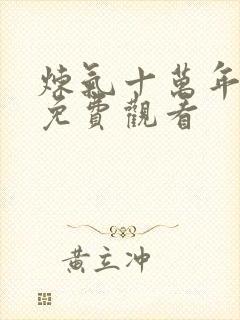 煉氣十萬年
免費觀看
黃立冲